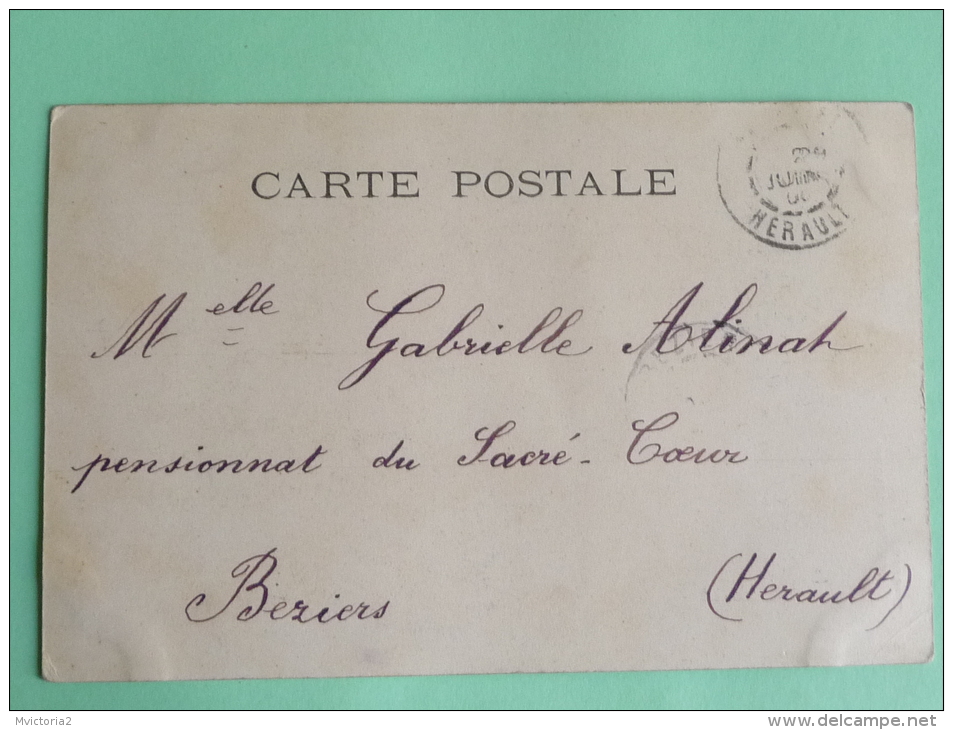 CARTE POSTALE
JUIN
HERAULT
Melle Gabrielle Alinat
pensionnat du Sacré-Cœur
Beziers (Herault)
Mvictoria2 www.delcampe.net